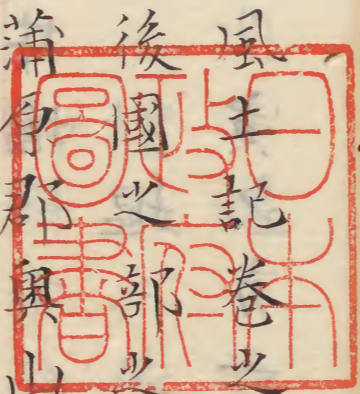 風土記卷之
後國之部之
蒲原郡奥山
日本
政府
圖書